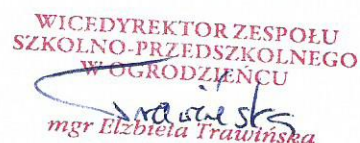 WICEDYREKTOR ZESPOŁU
SZKOLNO-PRZEDSZKOLNEGO
W OGRODZIEŃCU
Trawińska
mgr Elżbieta Trawińska